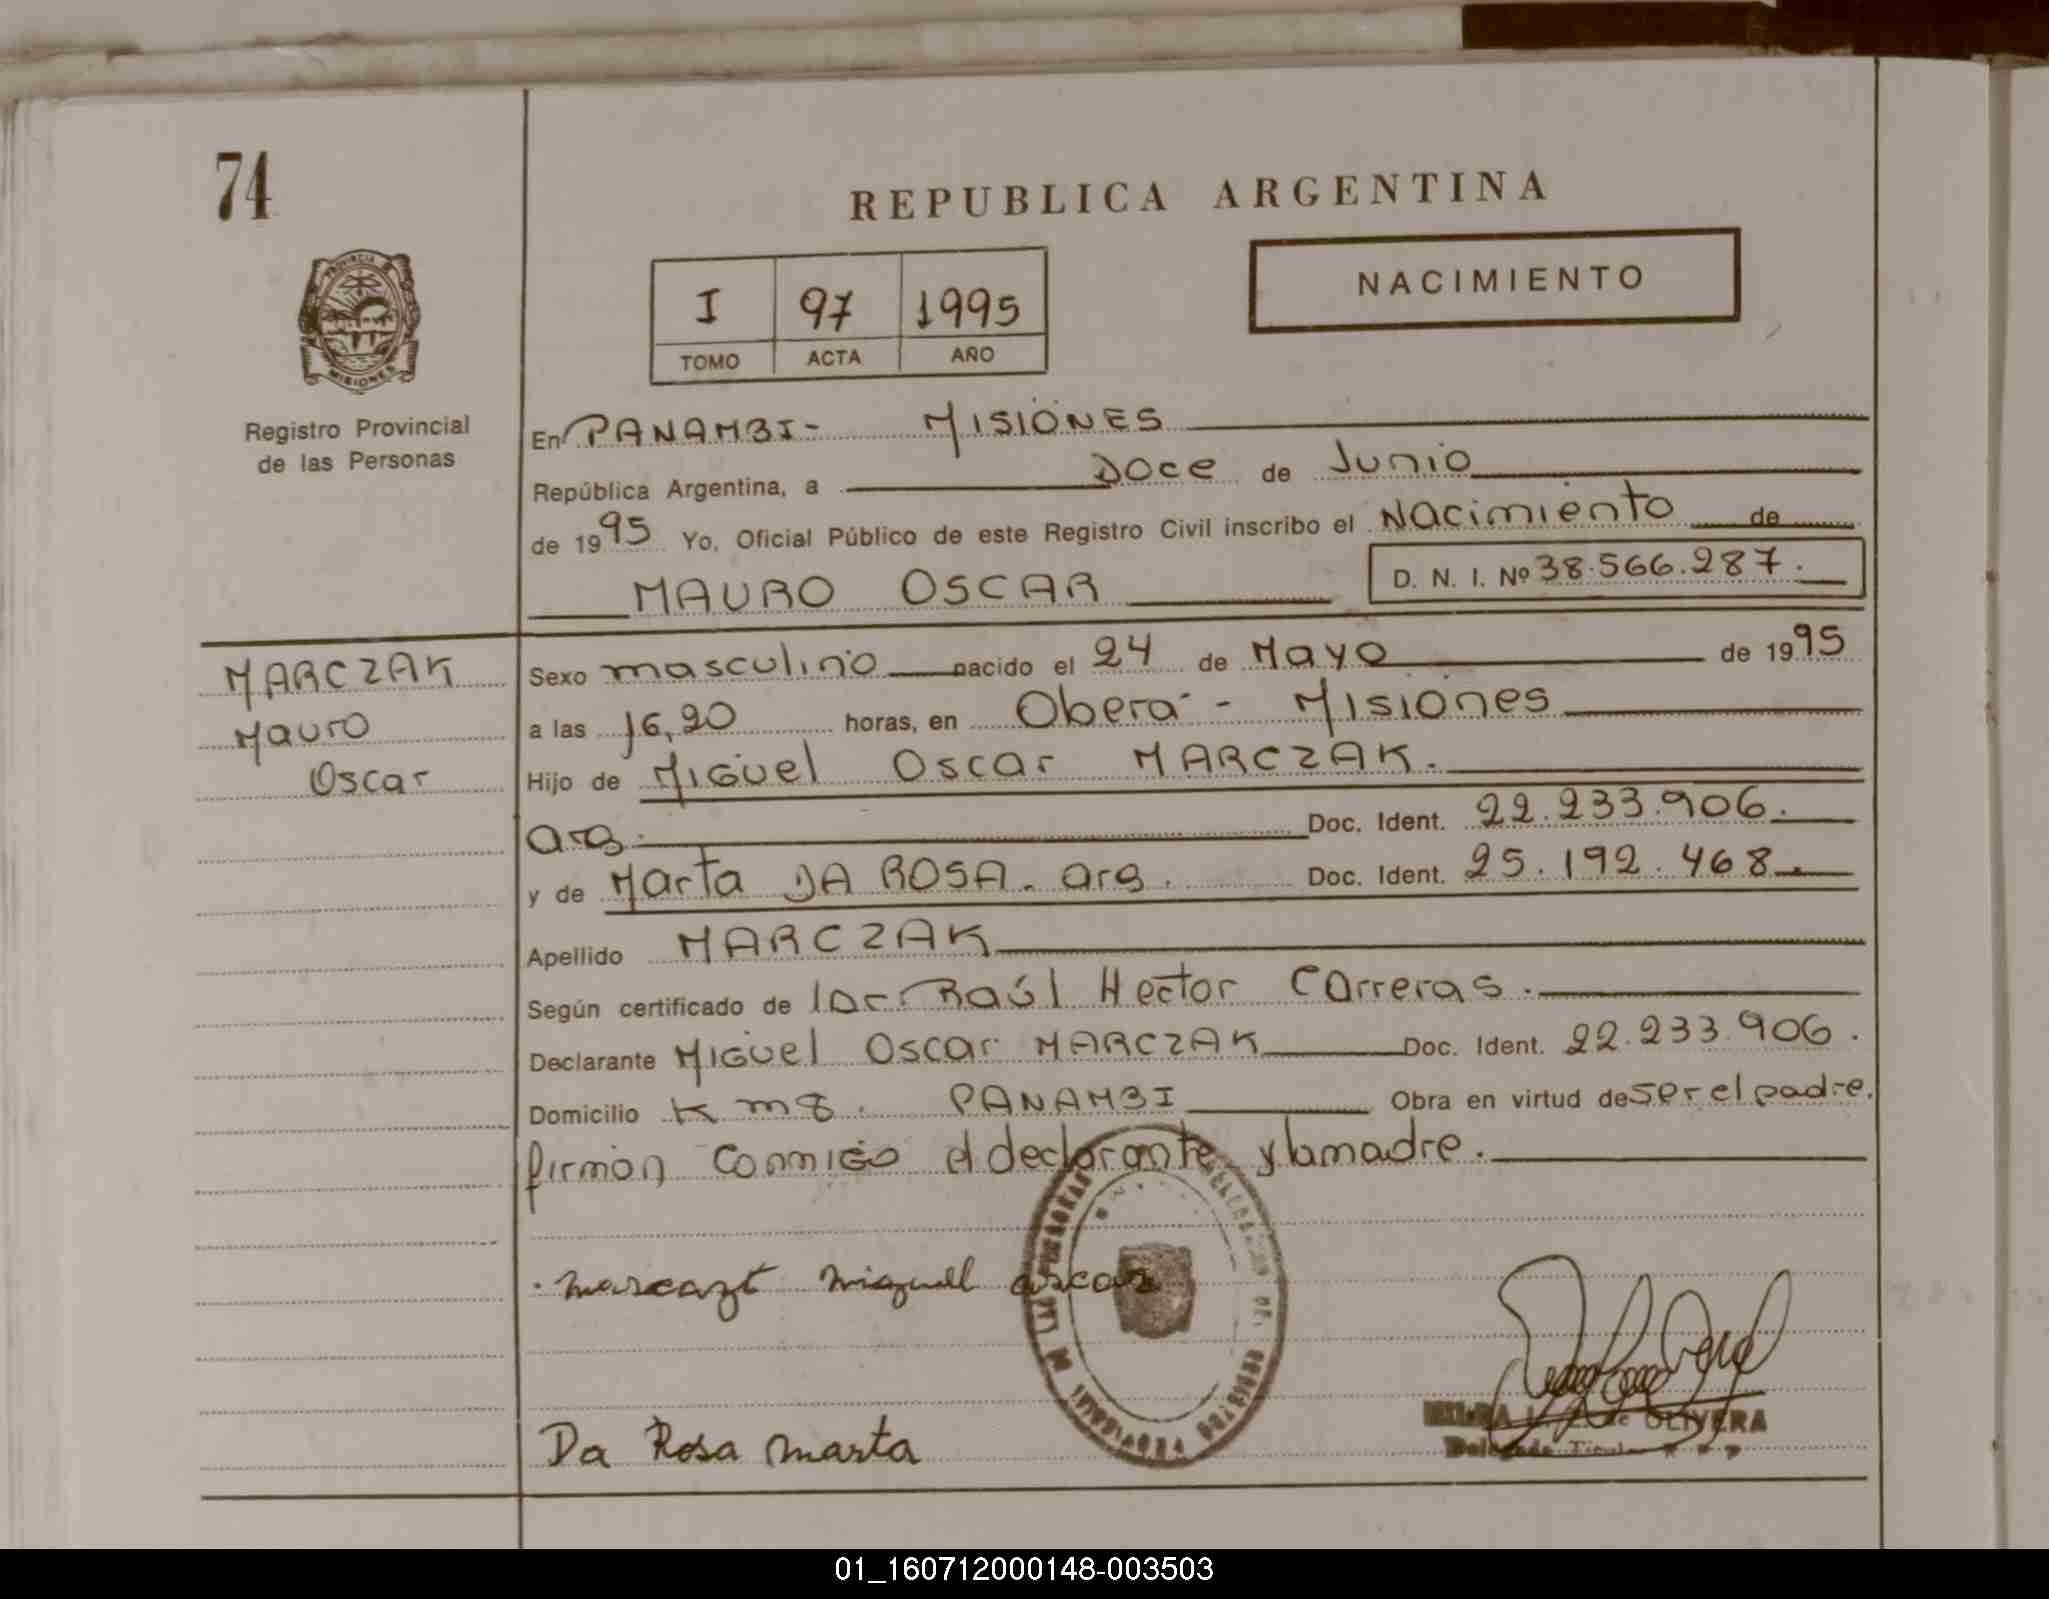 74
REPUBLICA ARGENTINA
PROVINCIA DE
MISIONES
Registro Provincial
de las Personas
I 97 1995
TOMO ACTA AÑO
NACIMIENTO
En PANAMBI- MISIONES
República Argentina, a Doce de Junio
de 1995 Yo, Oficial Público de este Registro Civil inscribo el Nacimiento de
MAURO OSCAR D. N. I. Nº 38.566.287.
MARCZAK
Mauro
Oscar
Sexo masculino nacido el 24 de Mayo de 1995
a las 16,20 horas, en Oberá - Misiones
Hijo de Miguel Oscar MARCZAK.
arg. Doc. Ident. 22.233.906.
y de Marta DA ROSA. arg. Doc. Ident. 25.192.468.
Apellido MARCZAK
Según certificado de Raúl Hector Carreras.
Declarante Miguel Oscar MARCZAK Doc. Ident. 22.233.906.
Domicilio Km 8. PANAMBI Obra en virtud de ser el padre.
firman conmigo el declarante y la madre.
miguel oscar
Da Rosa marta
REGISTRO PROVINCIAL DE LAS PERSONAS
de OLIVERA
Delegada Titular
01_160712000148-003503